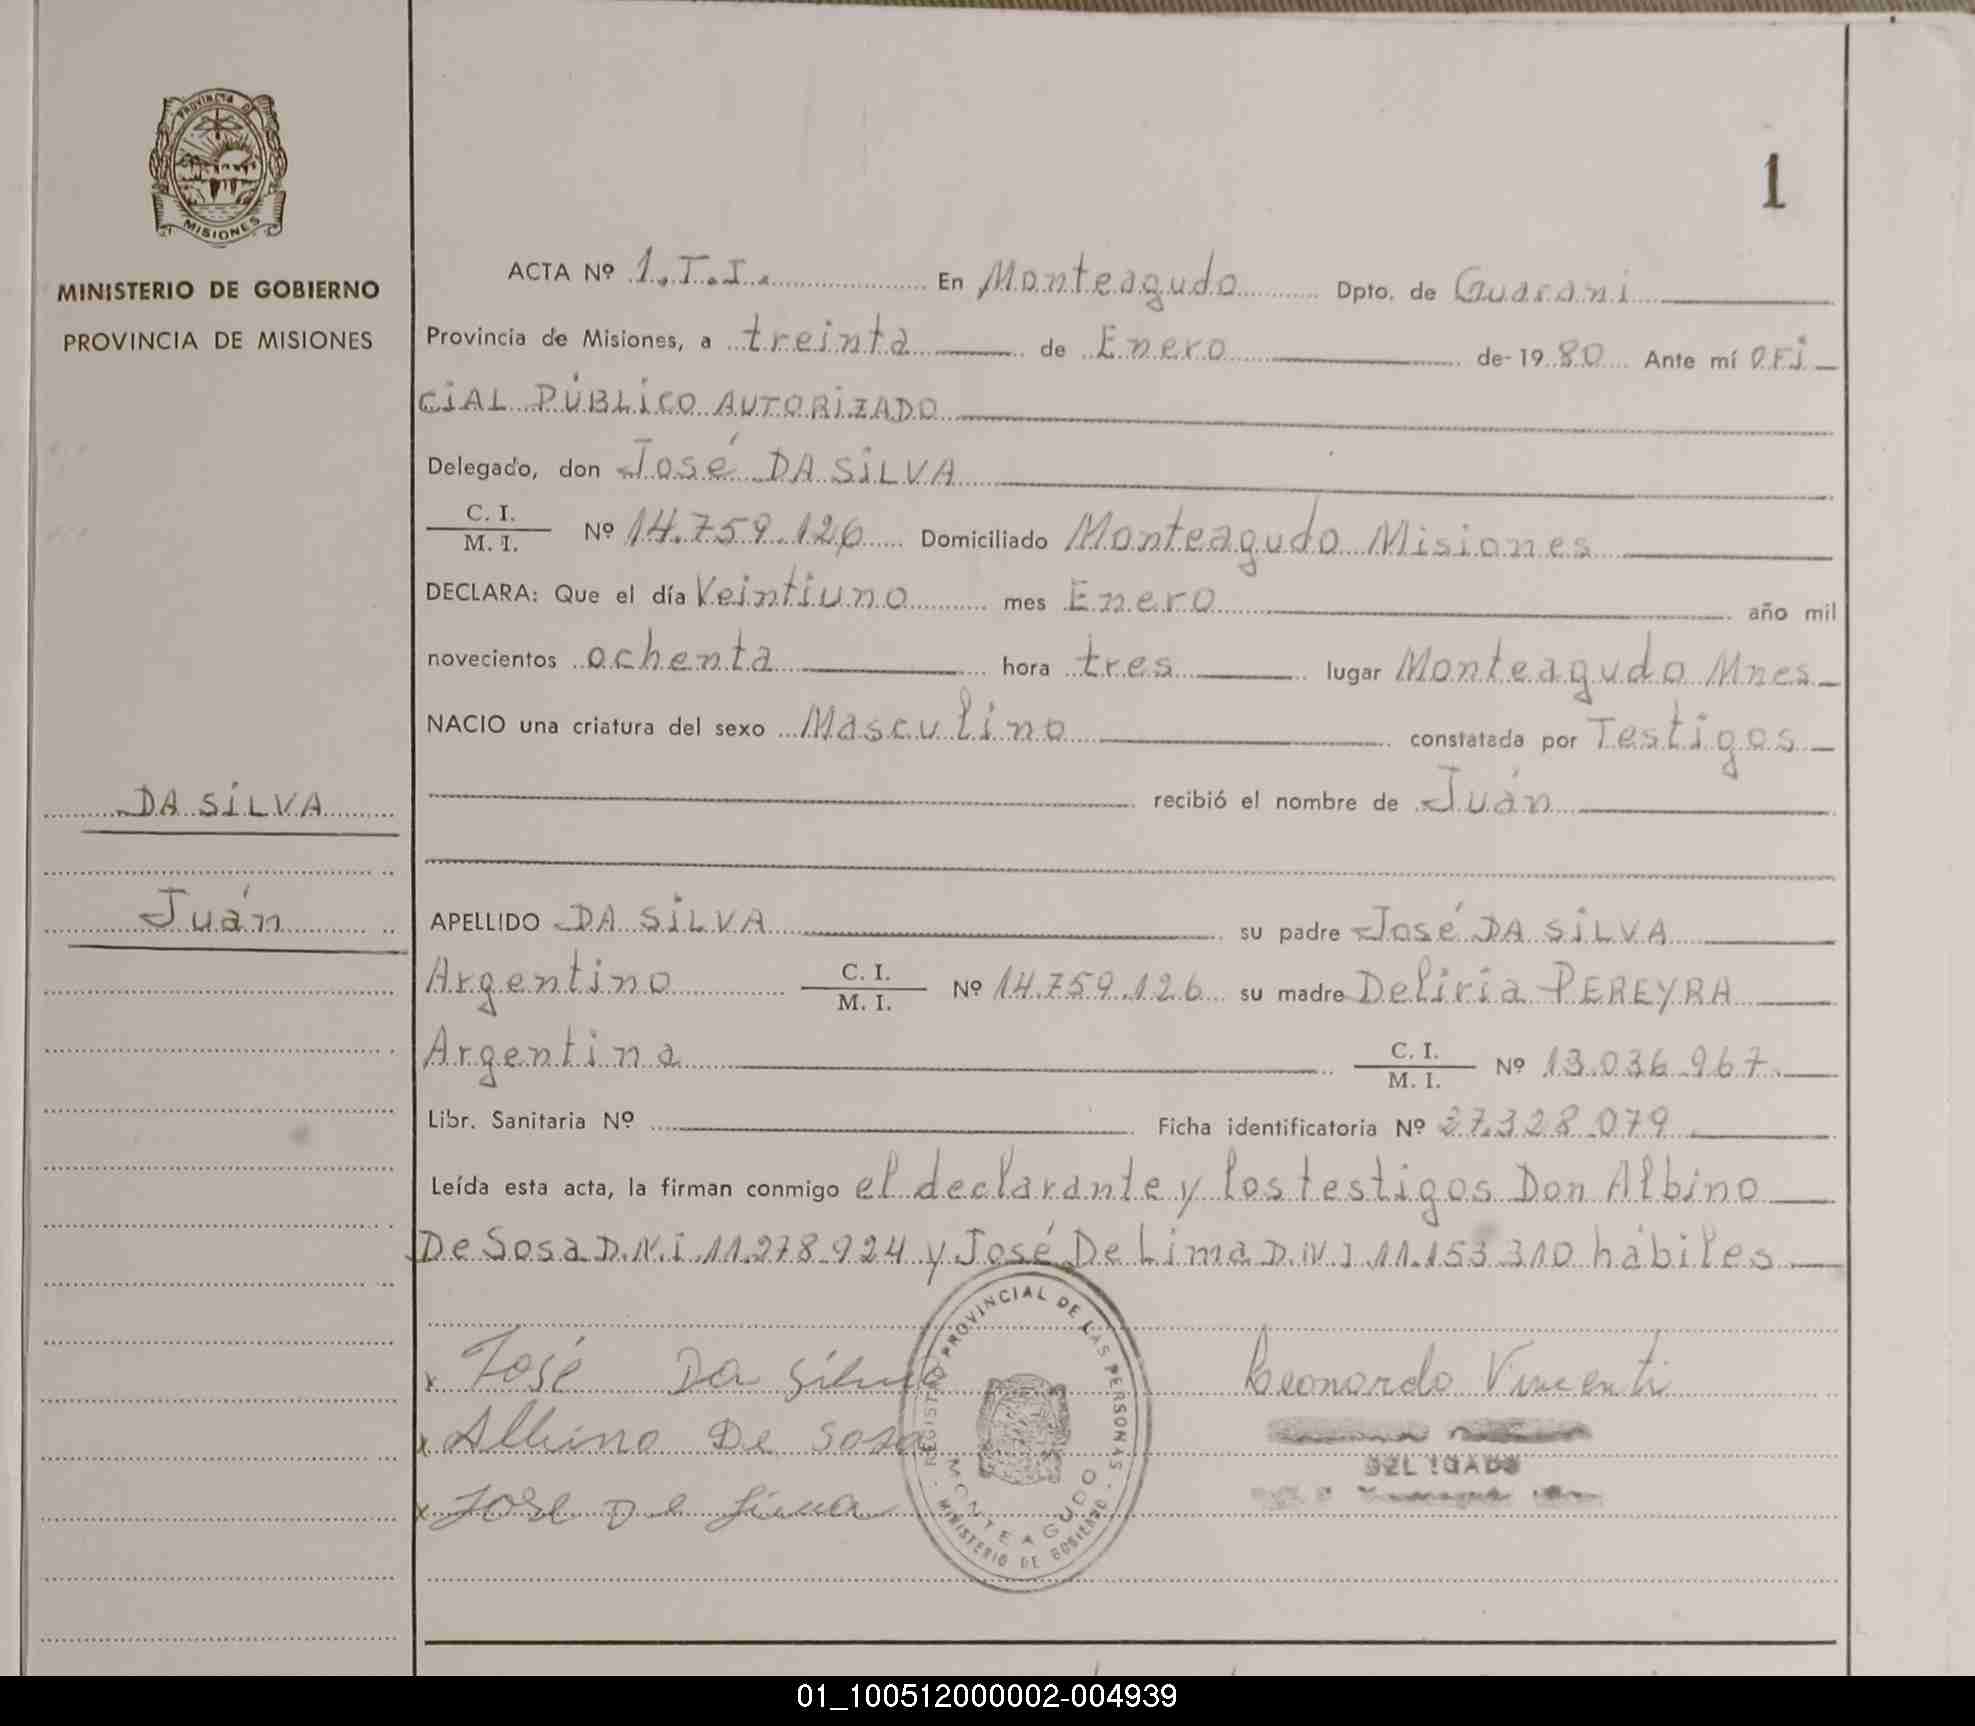 PROVINCIA DE
MISIONES
MINISTERIO DE GOBIERNO
PROVINCIA DE MISIONES
DA SILVA
Juán
1
ACTA Nº 1.T.I. En Monteagudo Dpto. de Guarani
Provincia de Misiones, a treinta de Enero de 1980 Ante mí OFI
CIAL PÚBLICO AUTORIZADO
Delegado, don José DA SILVA
C. I.
M. I. Nº 14.759.126 Domiciliado Monteagudo Misiones
DECLARA: Que el día Veintiuno mes Enero año mil
novecientos ochenta hora tres lugar Monteagudo Mnes
NACIO una criatura del sexo Masculino constatada por Testigos
recibió el nombre de Juán
APELLIDO DA SILVA su padre José DA SILVA
Argentino C. I. M. I. Nº 14.759.126 su madre Deliria PEREYRA
Argentina C. I. M. I. Nº 13.036.967.
Libr. Sanitaria Nº Ficha identificatoria Nº 27.328.079
Leída esta acta, la firman conmigo el declarante y los testigos Don Albino
De Sosa D.N.I. 11.278.924 y José De Lima D.N.I 11.153.310 hábiles
x José Da Silva Leonardo Vincenti
x Albino De Sosa
DELEGADO
x José De Lima
REGISTRO PROVINCIAL DE LAS PERSONAS
MONTEAGUDO
MINISTERIO DE GOBIERNO
01_100512000002-004939